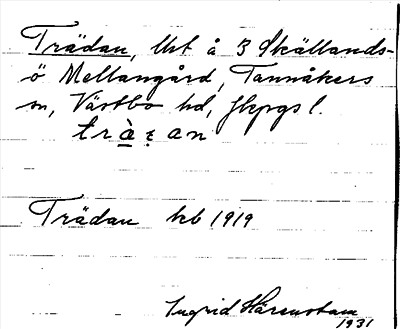 Trädan, lht å 3 Skällands-
ö Mellangård, Tannåkers
sn, Västbo hd, Jkpgs l.
trä̀ɛan
Trädan kb 1919
Ingrid Härenstam
1931